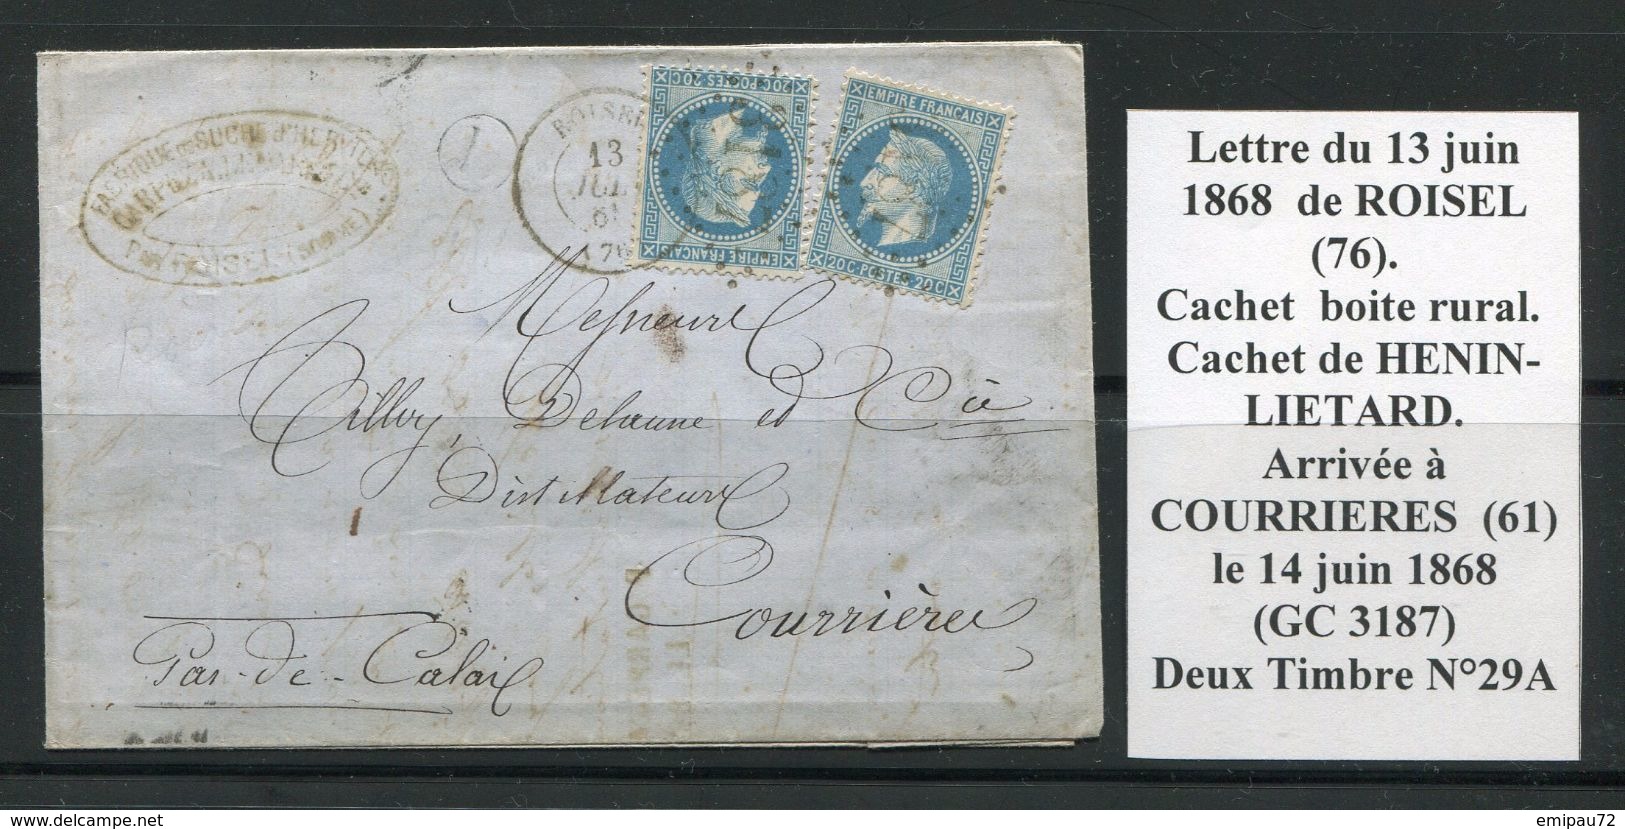 FABRIQUE DE SUCRE D'HERVILLY
Par ROISEL (SOMME)
1
ROISEL
13
JUI
76
20C POSTES 20C
EMPIRE FRANÇAIS
EMPIRE FRANÇAIS
20 C - POSTES - 20 C
Messieurs
Tilloy, Delaune et Cie
Distillateurs
Courrières
Pas-de-Calais
Lettre du 13 juin
1868 de ROISEL
(76).
Cachet boite rural.
Cachet de HENIN-
LIETARD.
Arrivée à
COURRIERES (61)
le 14 juin 1868
(GC 3187)
Deux Timbre N°29A
delcampe.net
emipau72